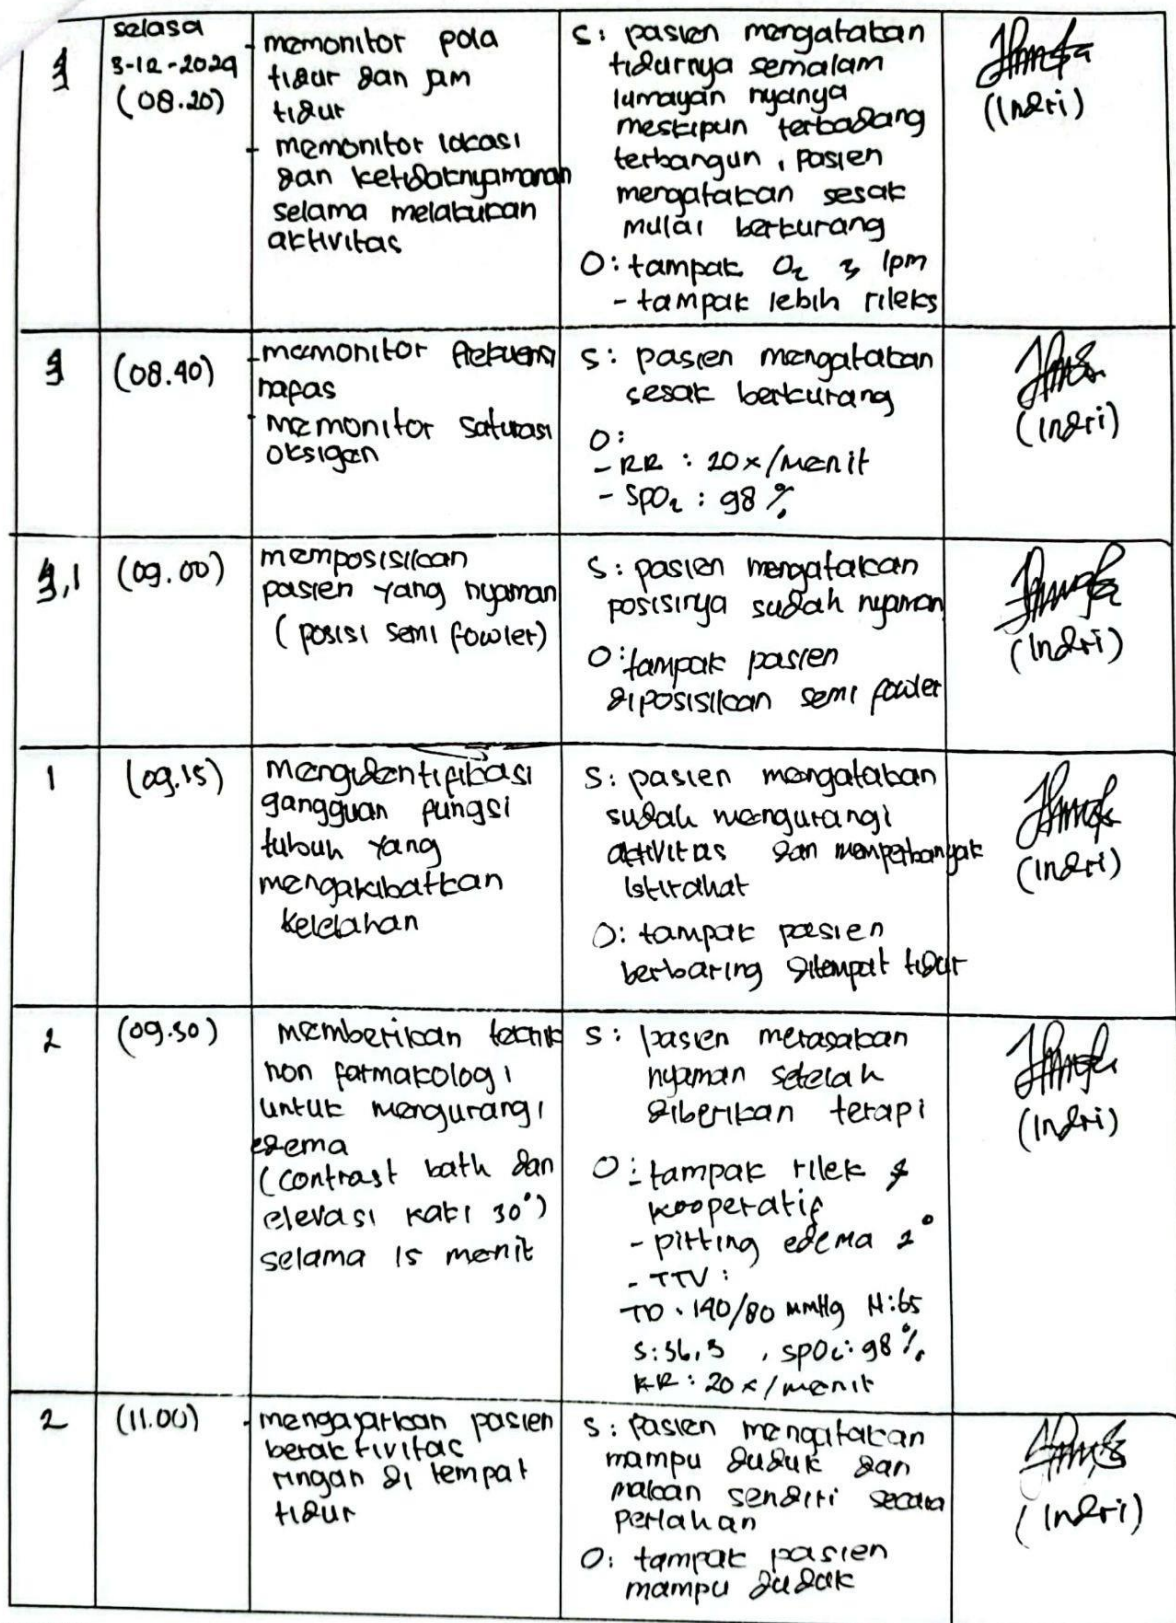 selasa
3-12-2024
(08.20)
- memonitor pola
tidur dan jam
tidur
- memonitor lokasi
dan ketidaknyamanan
selama melakukan
aktivitas
S: pasien mengatakan
tidurnya semalam
lumayan nyanya
meskipun terkadang
terbangun, pasien
mengatakan sesak
mulai berkurang
O: tampak O₂ 3 lpm
- tampak lebih rileks
(Indri)
3
(08.40)
- memonitor frekuensi
napas
- memonitor saturasi
oksigen
S: pasien mengatakan
sesak berkurang
O:
- RR : 20x/menit
- SPO₂ : 98 %
(Indri)
3,1
(09.00)
memposisikan
pasien yang nyaman
(posisi semi fowler)
S: pasien mengatakan
posisinya sudah nyaman
O: tampak pasien
diposisikan semi fowler
(Indri)
1
(09.15)
mengidentifikasi
gangguan fungsi
tubuh yang
mengakibatkan
kelelahan
S: pasien mengatakan
sudah mengurangi
aktivitas dan memperbanyak
istirahat
O: tampak pasien
berbaring ditempat tidur
(Indri)
2
(09.30)
memberikan teknik
non farmakologi
untuk mengurangi
edema
(contrast bath dan
elevasi kaki 30°)
selama 15 menit
S: pasien merasakan
nyaman setelah
diberikan terapi
O: - tampak rilek &
kooperatif
- pitting edema 2°
- TTV :
TD : 140/80 mmHg N:65
S:36,3 , SPO₂: 98%
RR : 20 x/menit
(Indri)
2
(11.00)
- mengajarkan pasien
beraktivitas
ringan di tempat
tidur
S: pasien mengatakan
mampu duduk dan
makan sendiri secara
perlahan
O: tampak pasien
mampu duduk
(Indri)